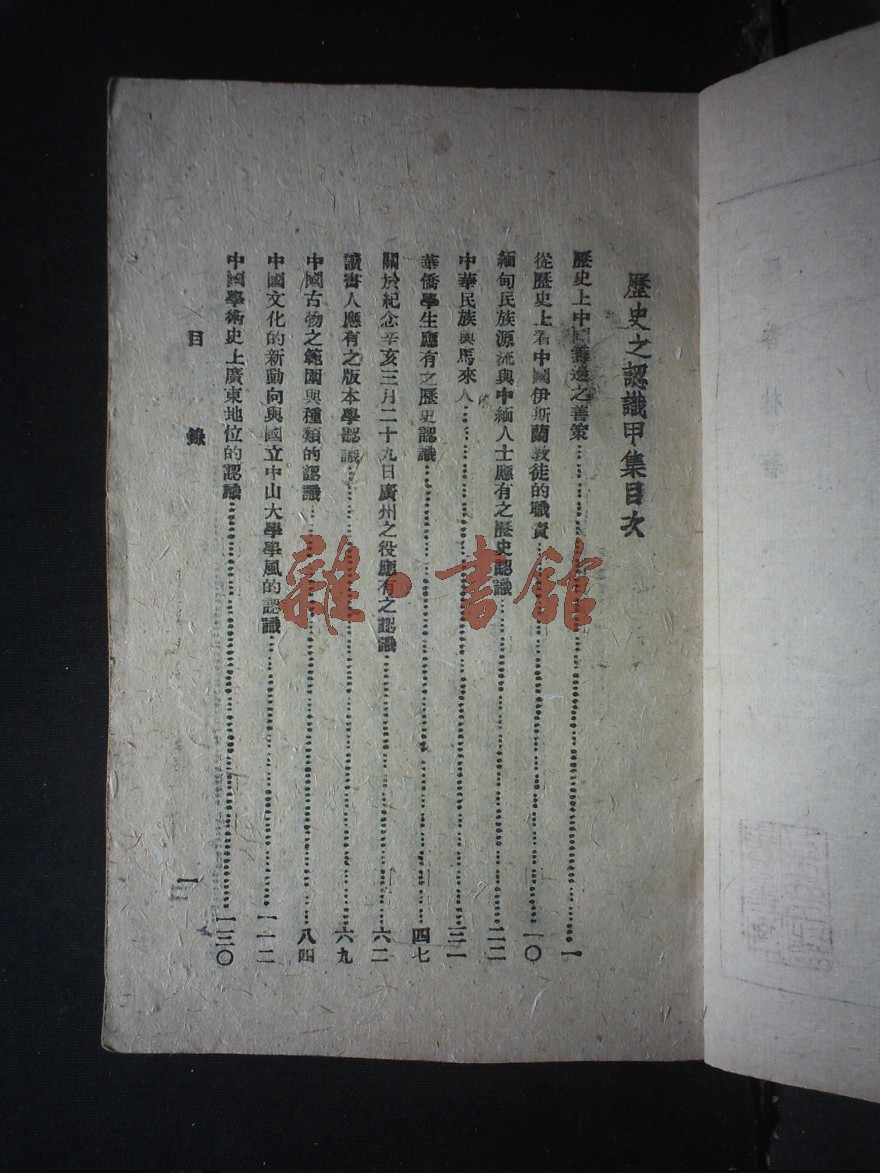 歷史之認識甲集目次
歷史上中國籌邊之善策……一
從歷史上看中國伊斯蘭敎徒的職責……一〇
緬甸民族源流與中緬人士應有之歷史認識……二二
中華民族與馬來人……三一
華僑學生應有之歷史認識……四七
關於紀念辛亥三月二十九日廣州之役應有之認識……六二
讀書人應有之版本學認識……六九
中國古物之範圍與種類的認識……八四
中國文化的新動向與國立中山大學學風的認識……一一二
中國學術史上廣東地位的認識……一三〇
目錄
一
雜·書館